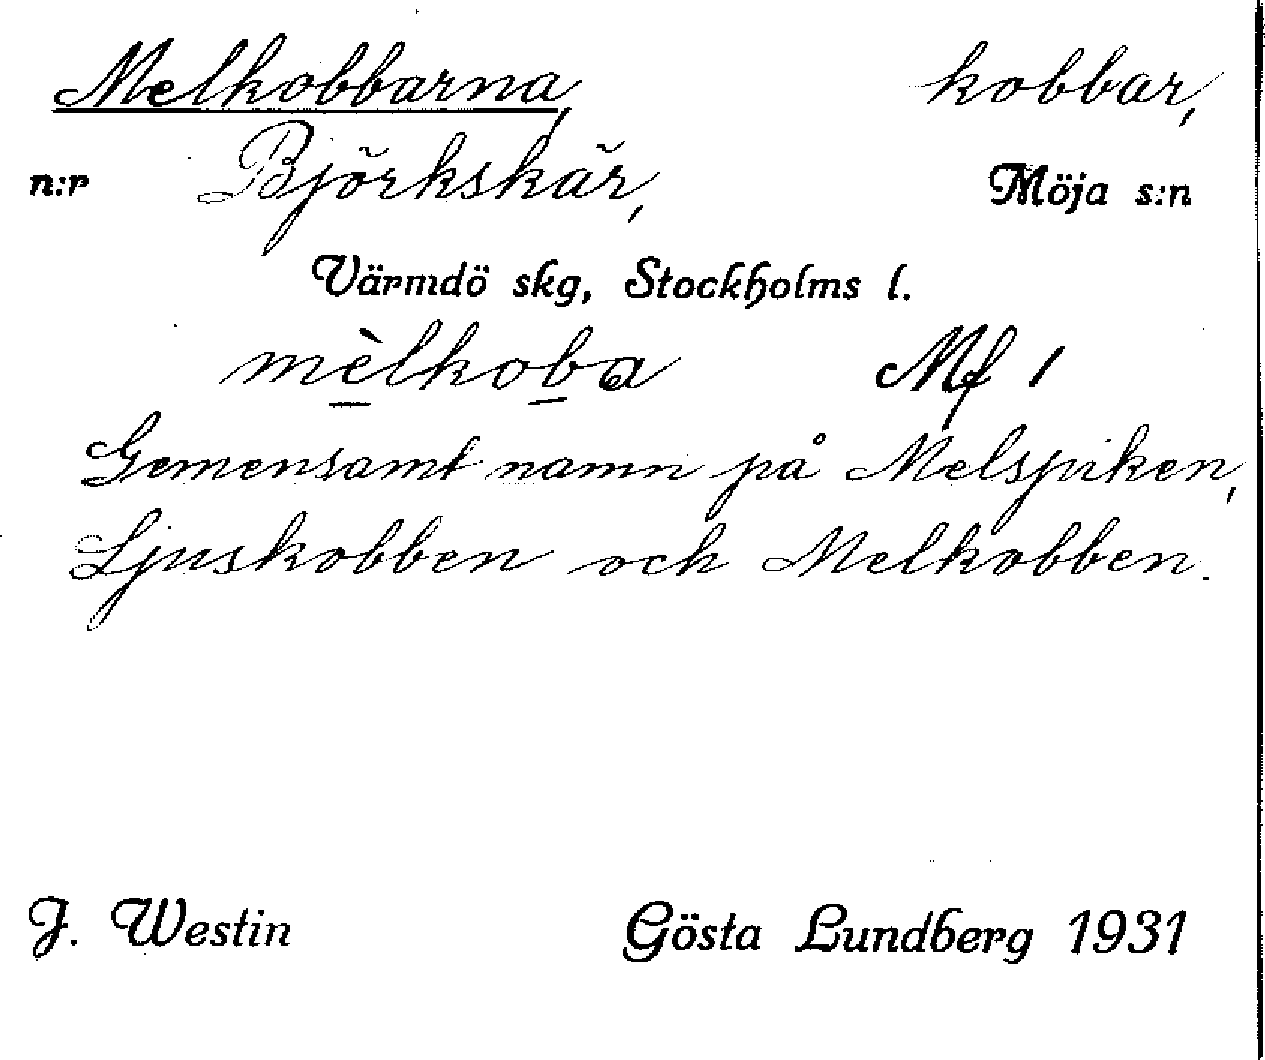 Melkobbarna, kobbar,
n:r Björkskär, Möja s:n
Värmdö skg, Stockholms l.
mèlkoba Mf 1
Gemensamt namn på Melspiken,
Ljuskobben och Melkobben.
J. Westin Gösta Lundberg 1931